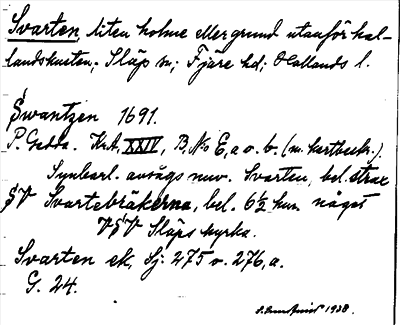 Svarten, liten holme eller grund utanför hal-
landskusten; Släp sn; Fjäre hd; Hallands l.
Swantzen 1691.
P. Gedda. Kr.A. XXIV, B. No E, a o. b. (m. kartbeskr.).
Synbarl. avsågs nuv. Svarten, bel. strax
SV Svartebräkorna, bel. 6½ km. något
VSV Släps kyrka.
Svarten ek, Sj: 275 o. 276, a.
G. 24.
1928.